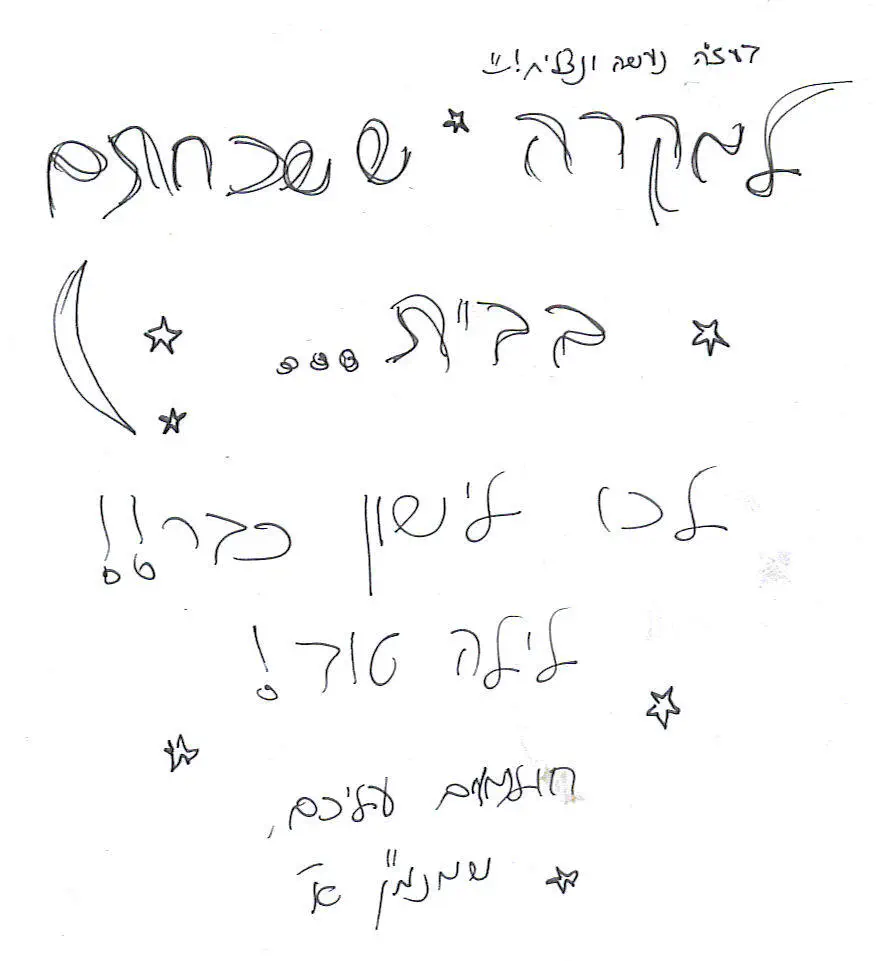 בעז"ה נעשה ונצליח!
למקרה ששכחתם
בבי"ת...
לכו לישון כבר!!
לילה טוב!
חולמים עליכם,
שמנמ"ן א'